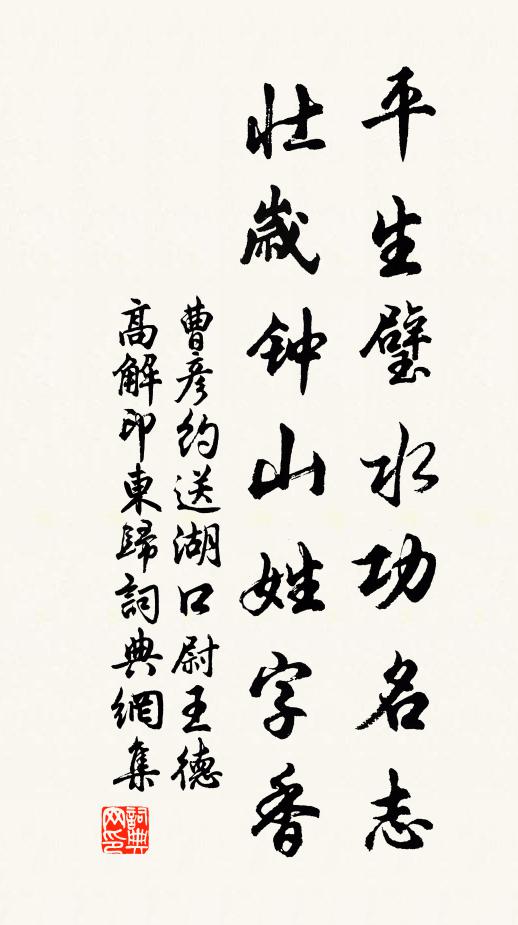 平生璧水功名志
壮歲钟山姓字香
曹彦約送湖口尉王德
高解印東歸詞典網集
詞典
网印